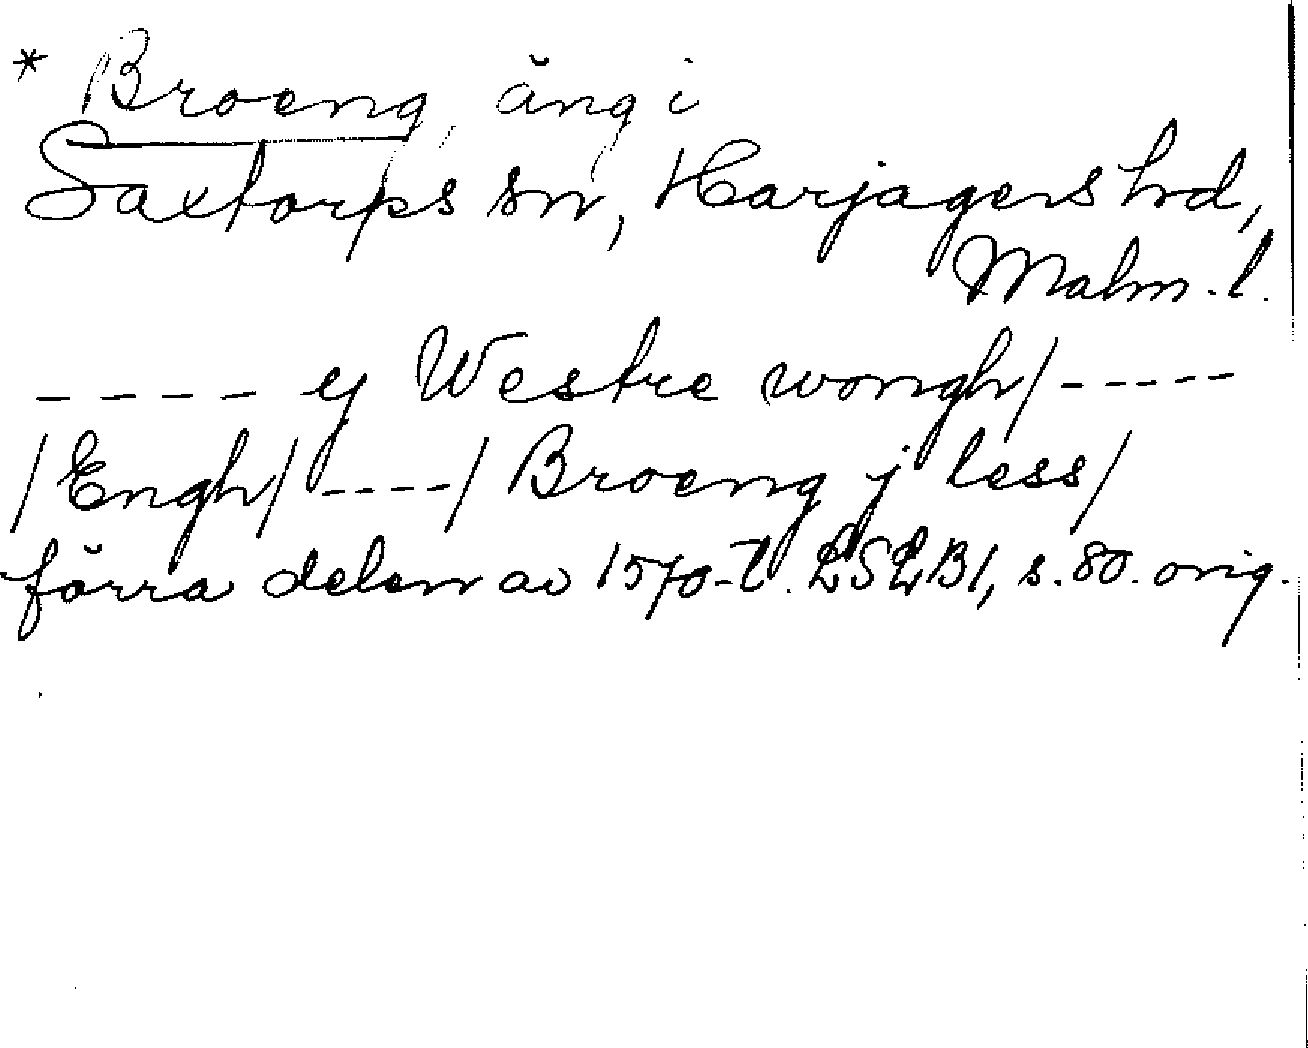 * Broeng, äng i
Saxtorps sn, Harjagers hd,
Malm.l.
----- ej Westre wongh/-----
/Engh/----/Broeng j less/
förra delen av 1570-t. LSLB1, s.80. orig.